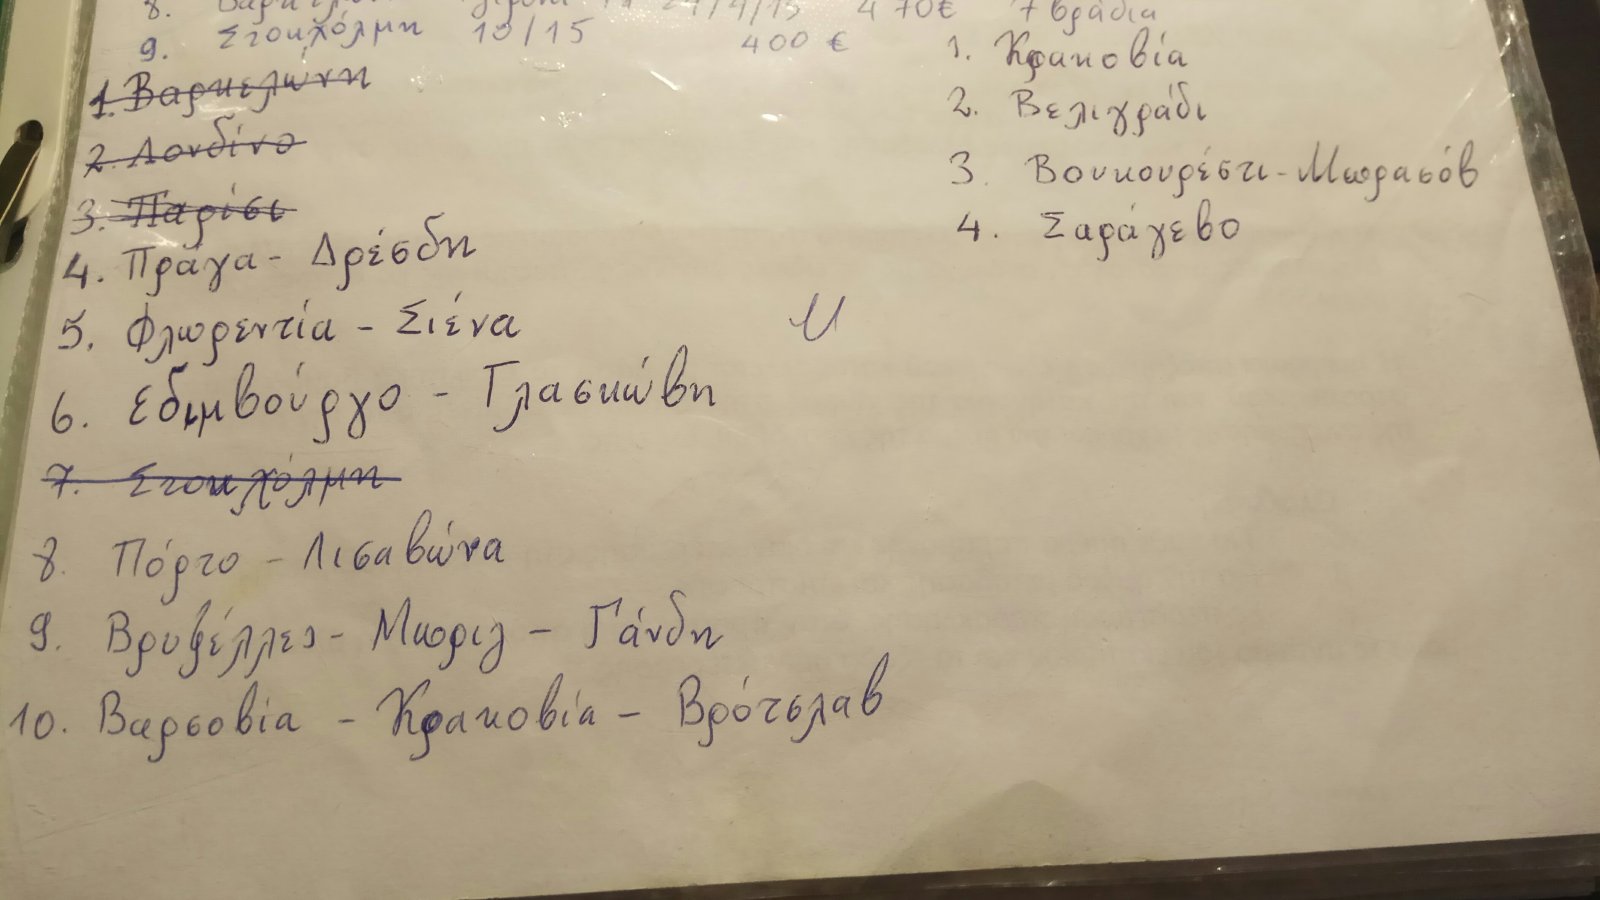 8. 4 70€ 7 βράδια
9. Στοκχόλμη 10/15 400 €
1. Βαρκελώνη
2. Λονδίνο
3. Παρίσι
4. Πράγα - Δρέσδη
5. Φλωρεντία - Σιένα
6. Εδιμβούργο - Γλασκώβη
7. Στοκχόλμη
8. Πόρτο - Λισαβώνα
9. Βρυξέλλες - Μπριζ - Γάνδη
10. Βαρσοβία - Κρακοβία - Βρότσλαβ
1. Κρακοβία
2. Βελιγράδι
3. Βουκουρέστι - Μπρασόβ
4. Σαράγεβο